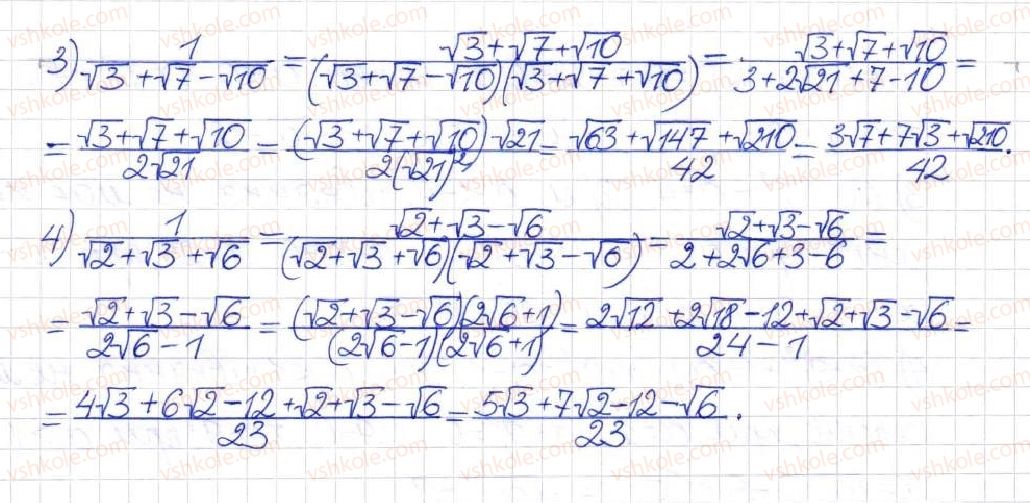 3) 1/(√3+√7-√10) = (√3+√7+√10)/((√3+√7-√10)(√3+√7+√10)) = (√3+√7+√10)/(3+2√21+7-10) =
= (√3+√7+√10)/(2√21) = ((√3+√7+√10)√21)/(2(√21)²) = (√63+√147+√210)/42 = (3√7+7√3+√210)/42.
4) 1/(√2+√3+√6) = (√2+√3-√6)/((√2+√3+√6)(√2+√3-√6)) = (√2+√3-√6)/(2+2√6+3-6) =
= (√2+√3-√6)/(2√6-1) = ((√2+√3-√6)(2√6+1))/((2√6-1)(2√6+1)) = (2√12+2√18-12+√2+√3-√6)/(24-1) =
= (4√3+6√2-12+√2+√3-√6)/23 = (5√3+7√2-12-√6)/23.
vshkole.com